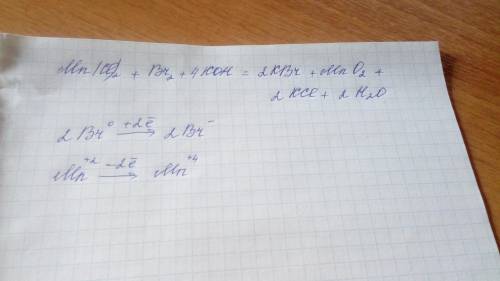 MnCl₂ + Br₂ + 4KOH = 2KBr + MnO₂ +
2KCl + 2H₂O
2Br⁰ +2ē → 2Br⁻
Mn⁺² -2ē → Mn⁺⁴